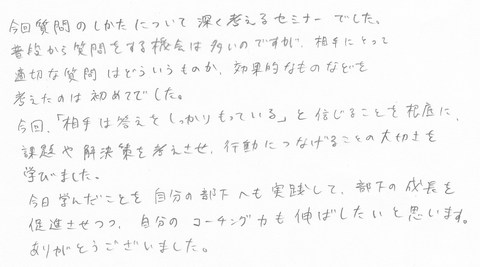 今回質問のしかたについて深く考えるセミナーでした。
普段から質問をする機会は多いのですが、相手にとって
適切な質問はどういうものか、効果的なものなどを
考えたのは初めてでした。
今回、「相手は答えをしっかりもっている」と信じることを根底に、
課題や解決策を考えさせ、行動につなげることの大切さを
学びました。
今日学んだことを自分の部下へも実践して、部下の成長を
促進させつつ、自分のコーチング力も伸ばしたいと思います。
ありがとうございました。